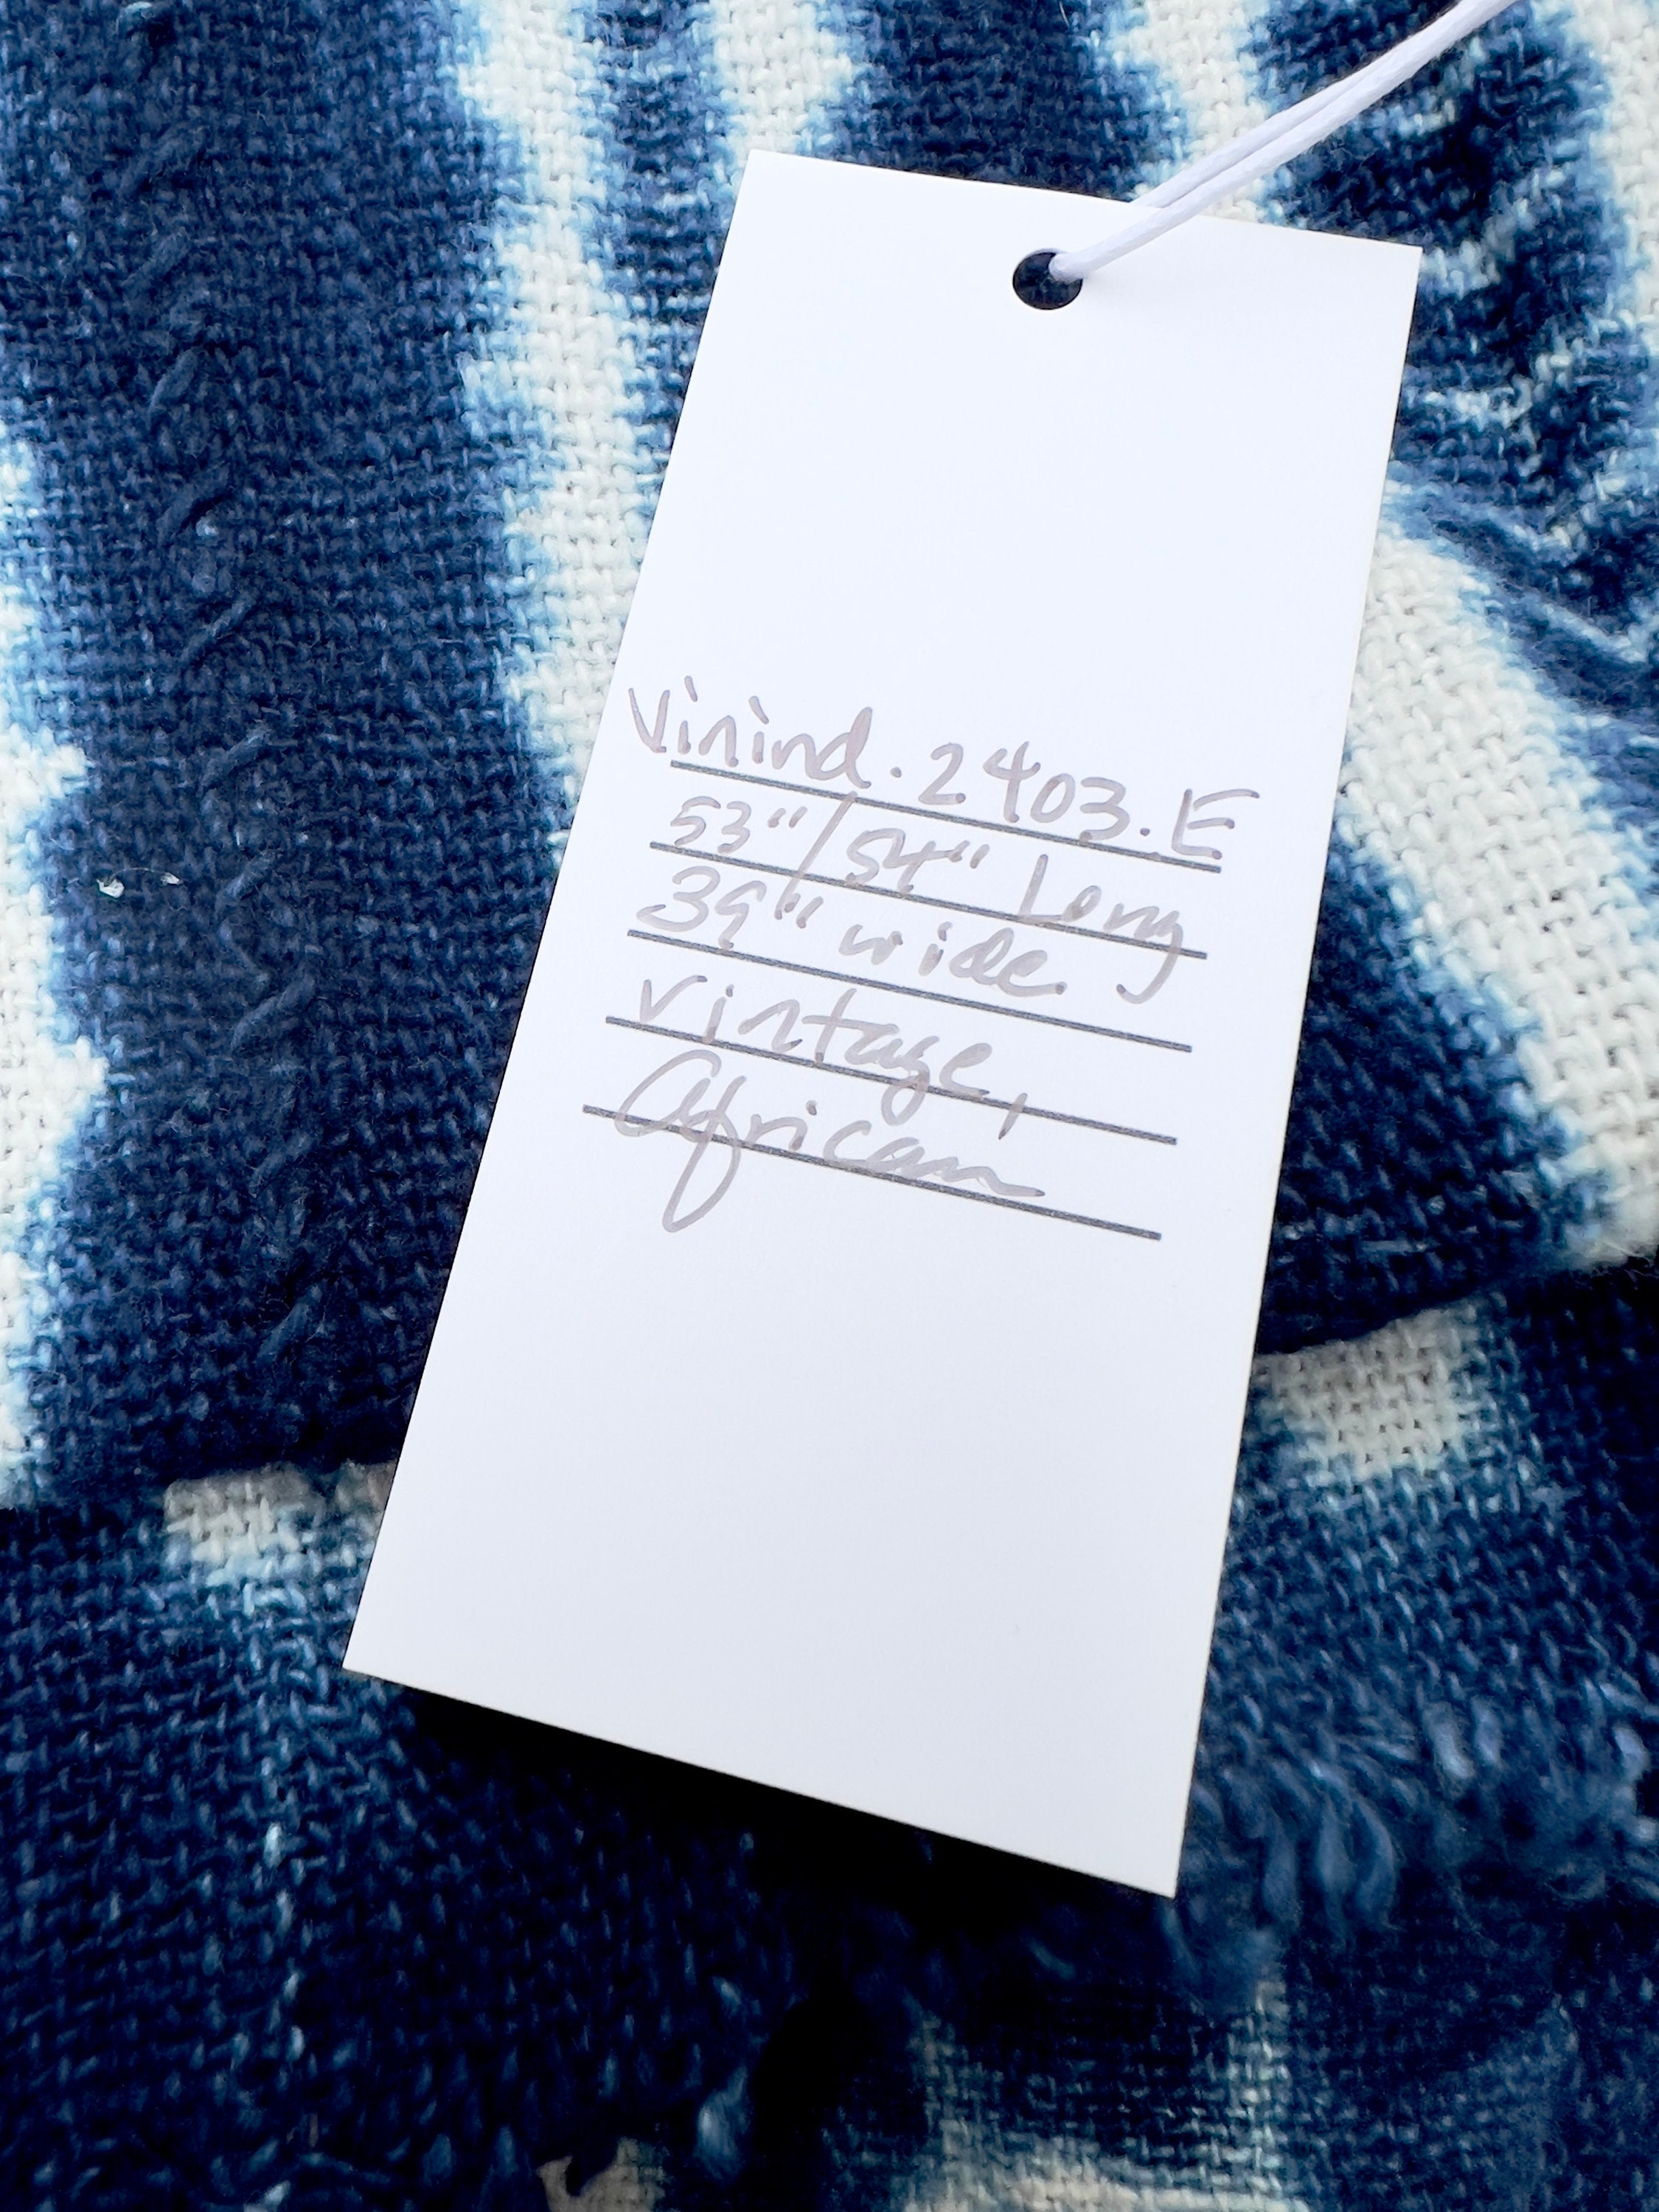 Vinind.2403.E
53"/54" Long
39" wide
vintage,
African